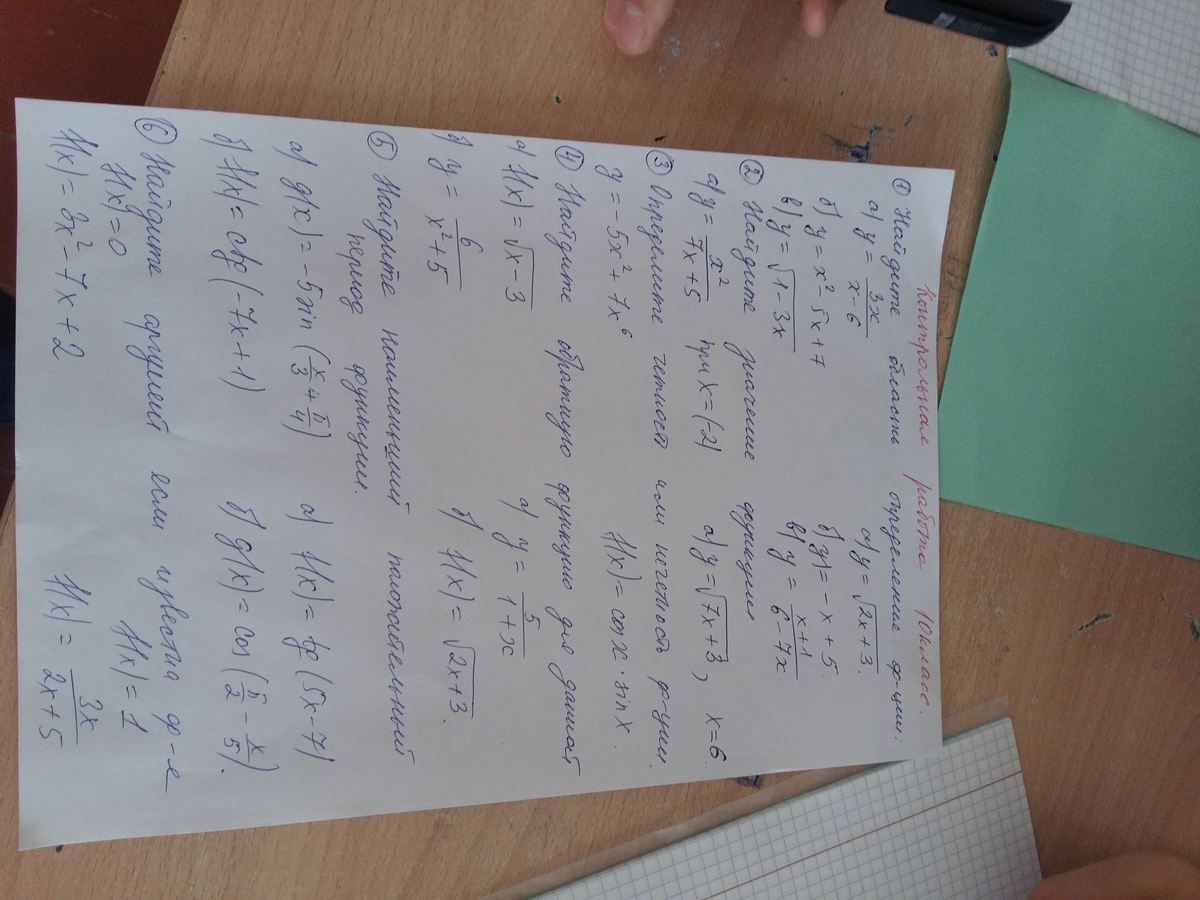 Контрольная работа 10 класс.
① Найдите область определение ф-ции:
а) y = 3x/(x-6)
а) y = √(2x+3).
б) y = x² - 5x + 7
б) y = -x + 5.
в) y = √(1-3x)
в) y = (x+1)/(6-7x)
② Найдите значение функции
а) y = x²/(7x+5) при x = (-2)
а) y = √(7x+3), x = 6.
③ Определите четность или нечетность ф-ции.
y = -5x² + 7x⁶
f(x) = cos x · sin x.
④ Найдите обратную функцию для данной
а) f(x) = √(x-3)
а) y = 5/(1+x)
б) y = 6/(x²+5)
б) f(x) = √(2x+3).
⑤ Найдите наименьший положительный
период функции.
а) g(x) = -5 sin (x/3 + π/4)
а) f(x) = tg (5x-7)
б) f(x) = ctg (-7x+1)
б) g(x) = cos (π/2 - x/5).
⑥ Найдите аргумент если известна ф-я
f(x) = 0
f(x) = 1
f(x) = 3x² - 7x + 2
f(x) = 3x/(2x+5)